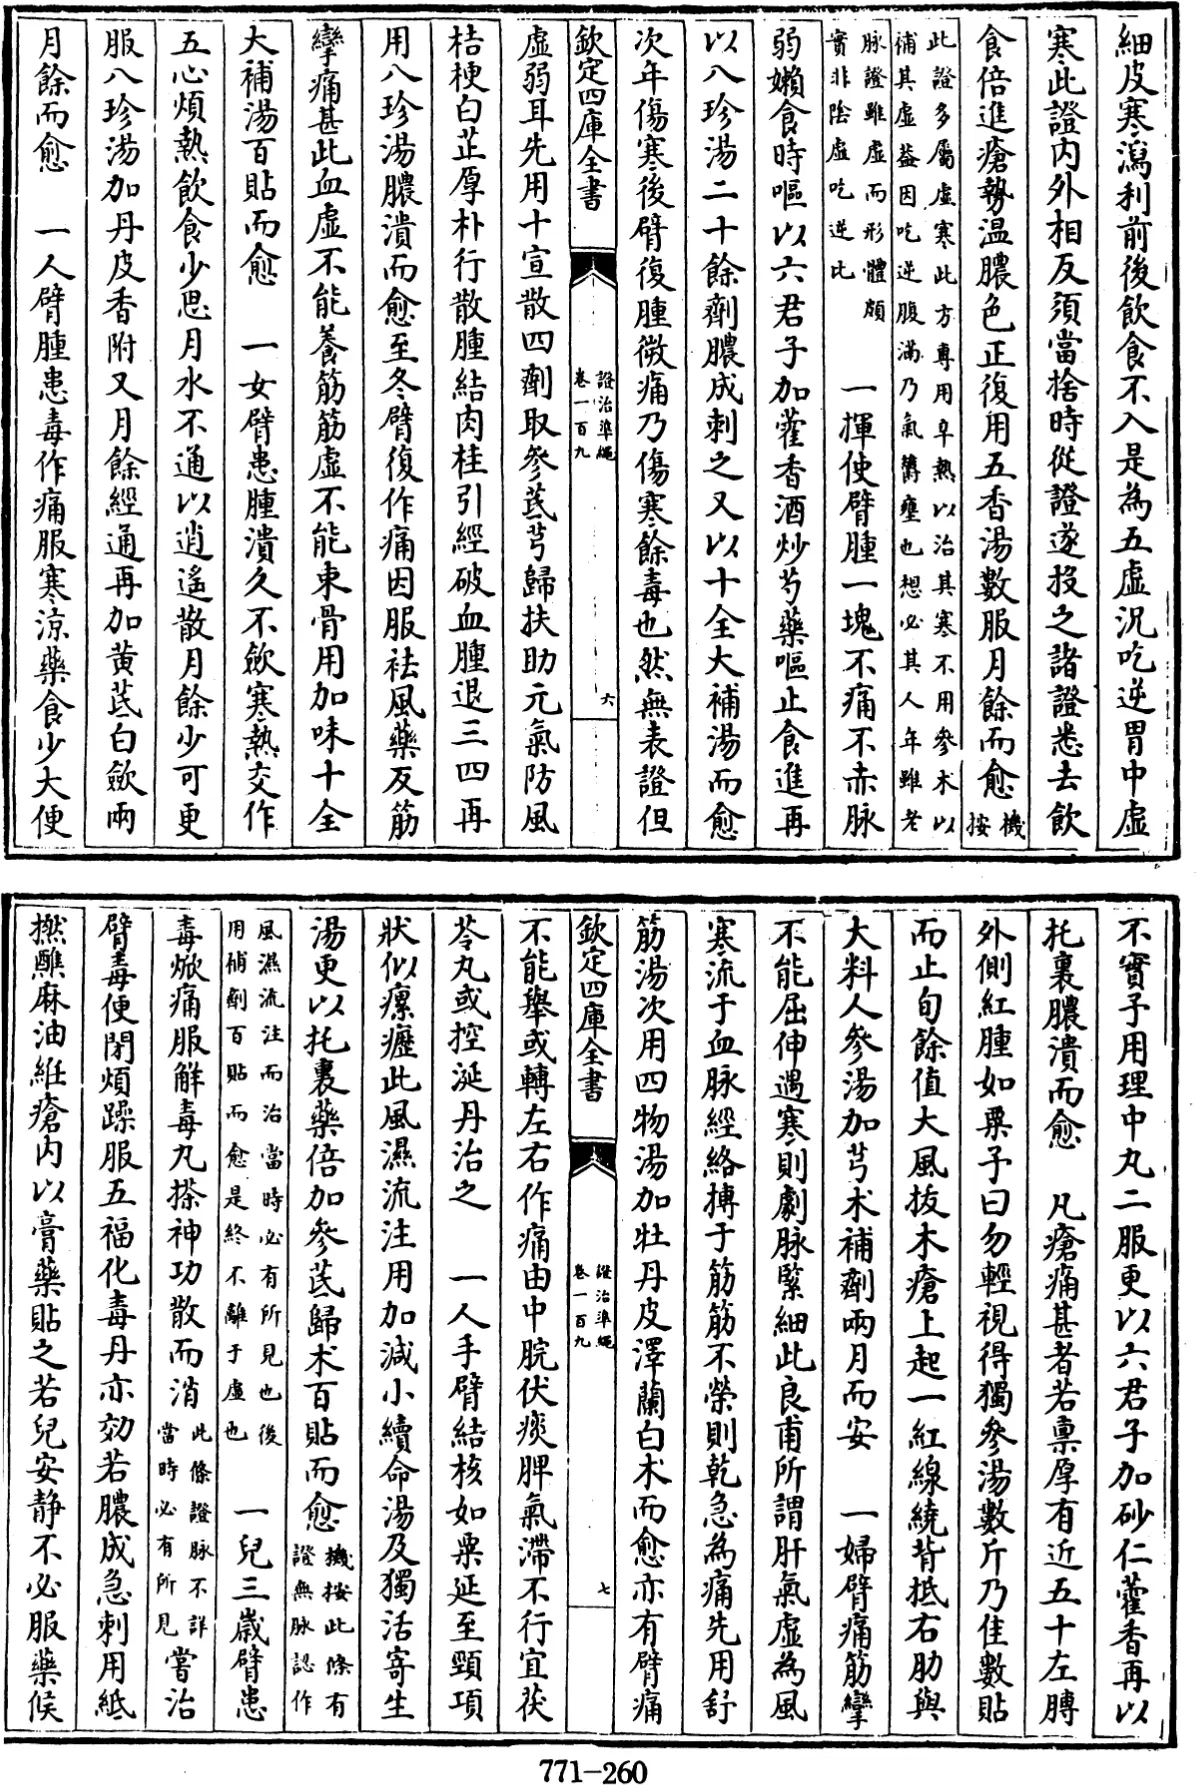 細皮寒瀉利前後飲食不入是為五虛況吃逆胃中虛
寒此證内外相反須當捨時從證遂投之諸證悉去飲
食倍進瘡勢温膿色正復用五香湯數服月餘而愈機按
此證多屬虛寒此方専用阜熱以治其寒不用參术以
補其虛葢因吃逆腹滿乃氣鬱壅也想必其人年雖老
脉證雖虛而形體頗
實非陰虛吃逆比　一揮使臂腫一塊不痛不赤脉
弱嬾食時嘔以六君子加藿香酒炒芍藥嘔止食進再
以八珍湯二十餘劑膿成刺之又以十全大補湯而愈
次年傷寒後臂復腫微痛乃傷寒餘毒也然無表證但
欽定四庫全書　證治準繩卷一百九　六
虛弱耳先用十宣散四劑取參芪芎歸扶助元氣防風
桔梗白芷厚朴行散腫結肉桂引經破血腫退三四再
用八珍湯膿潰而愈至冬臂復作痛因服祛風藥及筋
攣痛甚此血虛不能養筋筋虛不能束骨用加味十全
大補湯百貼而愈　一女臂患腫潰久不歛寒熱交作
五心煩熱飲食少思月水不通以逍遥散月餘少可更
服八珍湯加丹皮香附又月餘經通再加黄芪白歛兩
月餘而愈　一人臂腫患毒作痛服寒涼藥食少大便
不實子用理中丸二服更以六君子加砂仁藿香再以
托裏膿潰而愈　凡瘡痛甚者若禀厚有近五十左膊
外側紅腫如粟子曰勿輕視得獨參湯數斤乃佳數貼
而止旬餘值大風拔木瘡上起一紅線繞背抵右肋與
大料人參湯加芎术補劑兩月而安　一婦臂痛筋攣
不能屈伸遇寒則劇脉緊細此良甫所謂肝氣虛為風
寒流于血脉經絡搏于筋筋不榮則乾急為痛先用舒
筋湯次用四物湯加牡丹皮澤蘭白术而愈亦有臂痛
欽定四庫全書　證治準繩卷一百九　七
不能舉或轉左右作痛由中脘伏痰脾氣滯不行宜茯
苓丸或控涎丹治之　一人手臂結核如粟延至頸項
狀似瘰癧此風濕流注用加減小續命湯及獨活寄生
湯更以托裏藥倍加參芪歸术百貼而愈機按此條有證無脉認作
風濕流注而治當時必有所見也後
用補劑百貼而愈是終不離于虛也　一兒三歲臂患
毒焮痛服解毒丸搽神功散而消此條證脉不詳當時必有所見嘗治
臂毒便閉煩躁服五福化毒丹亦効若膿成急刺用紙
撚蘸麻油紝瘡内以膏藥貼之若兒安静不必服藥候
771-260